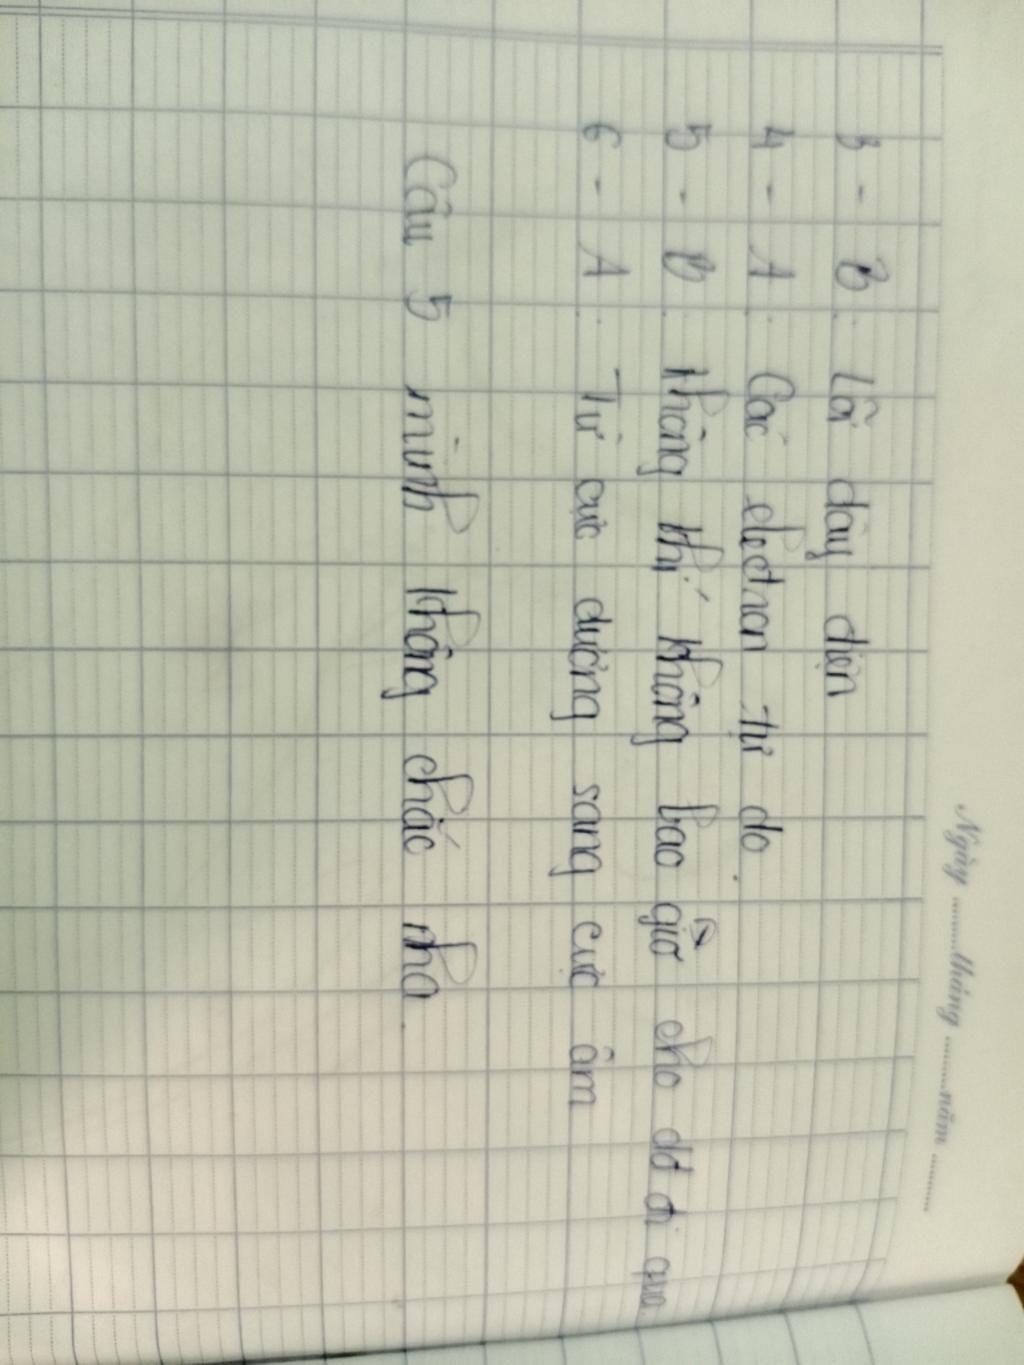 Ngày ......... tháng ......... năm .........
3 - B. Lõi dây điện
4 - A. Các electron tự do.
5 - D. Không khí không bao giờ cho dđ đi qua
6 - A. Từ cực dương sang cực âm
Câu 5 mình không chắc nha.